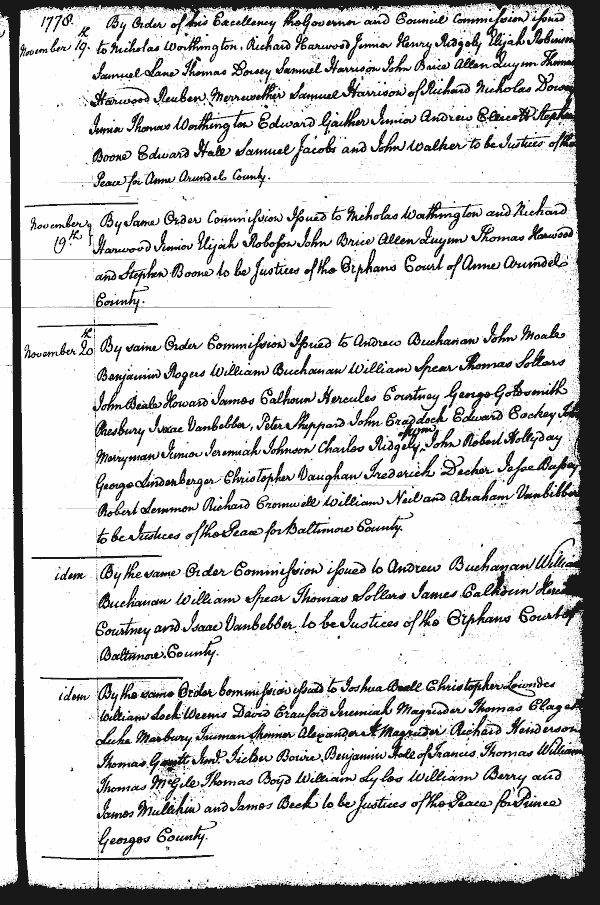 1778. By Order of his Excellency the Governor and Council Commission issued
November 19.th to Nicholas Worthington, Richard Harwood Junior Henry Ridgely Elijah Robinson
Samuel Lane Thomas Dorsey Samuel Harrison John Brice Allen Quynn Thomas
Harwood Reuben Merrewether Samuel Harrison of Richard Nicholas Dorsey
Junior Thomas Worthington Edward Gaither Junior Andrew Ellicott Stephen
Boone Edward Hall Samuel Jacobs and John Walker to be Justices of the
Peace for Anne Arundel County.
November 19th By Same Order Commission Issued to Nicholas Worthington and Richard
Harwood Junior Elijah Robosson John Brice Allen Quynn Thomas Harwood
and Stephen Boone to be Justices of the Orphans Court of Anne Arundel
County.
November 20th By same Order Commission Issued to Andrew Buchanan John Moale
Benjamin Rogers William Buchanan William Spear Thomas Sollars
John Beale Howard James Calhoun Hercules Courtney George Goldsmith
Presbury Isaac Vanbebber, Peter Sheppard John Craddock Edward Cockey John
Merryman Junior Jeremiah Johnson Charles Ridgely of Wm John Robert Hollyday
George Lindenberger Christopher Vaughan Frederick Decker Jesse Bussey
Robert Lemmon Richard Cromwell William Neil and Abraham Vanbibber
to be Justices of the Peace for Baltimore County.
idem By the same Order Commission issued to Andrew Buchanan William
Buchanan William Spear Thomas Sollers James Calhoun Hercules
Courtney and Isaac Vanbebber to be Justices of the Orphans Court of
Baltimore County.
idem By the same Order Commission issued to Joshua Beall Christopher Lowndes
William Lock Weems David Craufurd Jeremiah Magruder Thomas Clagett
Luke Marbury Truman Skinner Alexander H Magruder Richard Henderson
Thomas Gantt Junr. Fielder Bowie, Benjamin Hall of Francis Thomas Williams
Thomas McGill Thomas Boyd William Lyles William Berry and
James Mullikin and James Beck to be Justices of the Peace for Prince
Georges County.